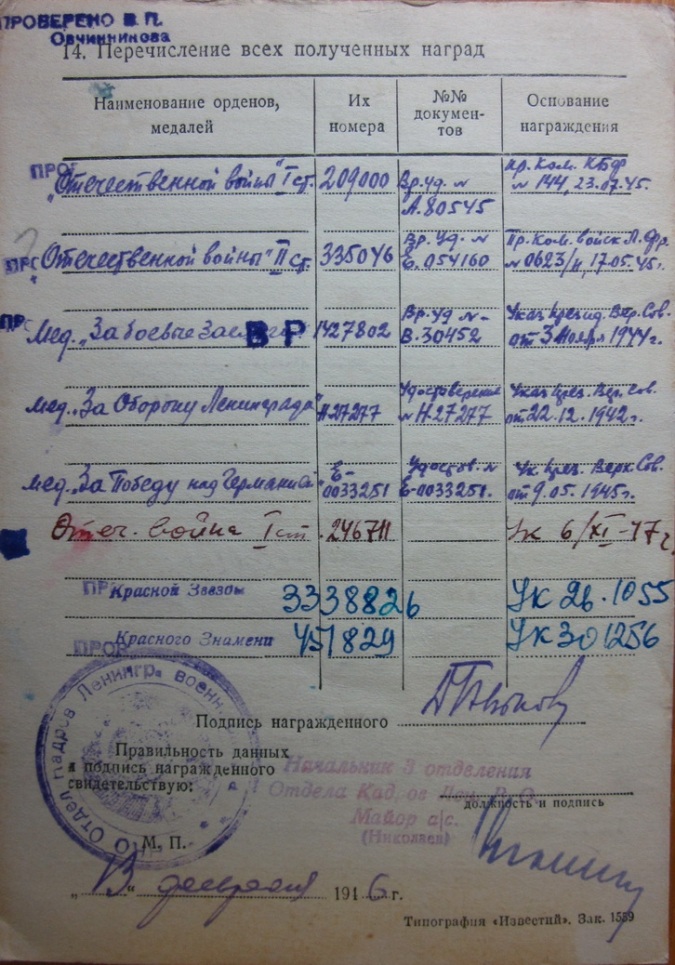 ПРОВЕРЕНО В. П.
Овчинникова
14. Перечисление всех полученных наград
Наименование орденов, медалей
Их номера
№№ документов
Основание награждения
ПРОВ
„Отечественной войны" I ст. 209000 Вр. уд. № А.80545 Пр. Ком. КБФ № 144, 23.07.45.
ПРО
Отечественной войны" II ст. 335046 Вр. Уд. № Е. 054160 Пр. Ком. войск Л. Фр. № 0623/н, 17.05.45г.
ПР
Мед. „За боевые 1427802 Вр. Уд № - В. 30452 Указ През ид. Вер. Сов. от 3 Ноября 1944г.
ВР
Мед. „За Оборону Ленинграда" Н 27277 Удостоверение № Н. 27277 Указ През. Вер. Сов. от 22.12.1942г.
Мед. „За Победу над Германией Е-0033251 Удостов. № Е-0033251. Ук. През. Верх Сов. от 9.05.1945г.
Отеч. война I ст. 246711 Ук 6/XI-47г.
ПР Красной Звезды 3338826 Ук 26.1055
Красного Знамени 451829 Ук 301256
ПРОВ
Подпись награжденного
Правильность данных
и подпись награжденного
свидетельствую:
Начальник 3 отделения
Отдела Кад ов Лен. В. О.
Майор а/с.
(Николаев)
должность и подпись
Отдел кадров Ленингр. военн
М. П.
„13" февраля 1946 г.
Типография «Известий». Зак. 1559